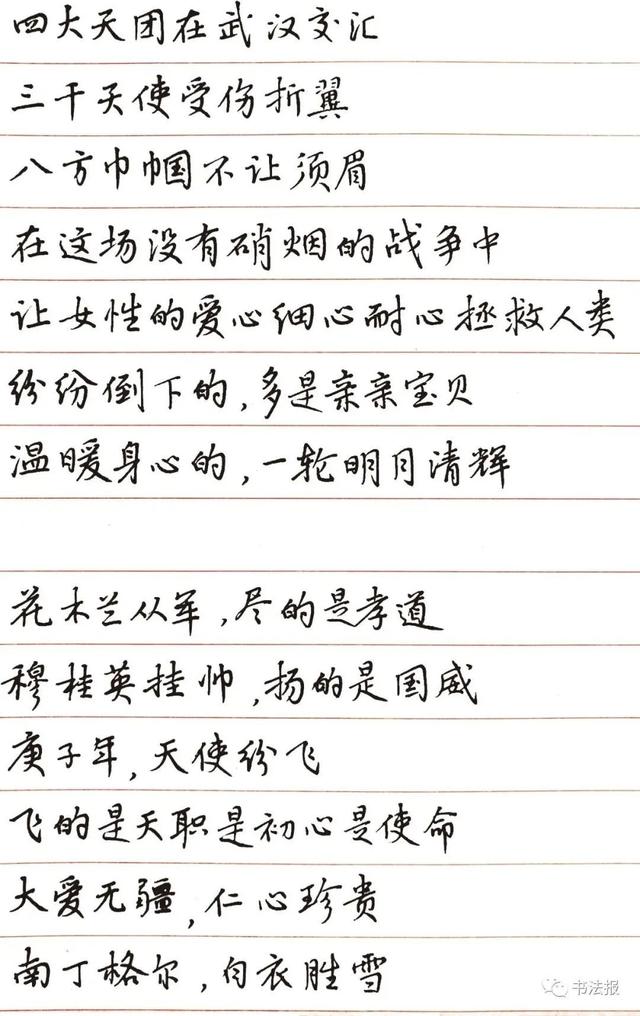 四大天团在武汉交汇
三千天使受伤折翼
八方巾帼不让须眉
在这场没有硝烟的战争中
让女性的爱心细心耐心拯救人类
纷纷倒下的,多是亲亲宝贝
温暖身心的,一轮明月清辉
花木兰从军,尽的是孝道
穆桂英挂帅,扬的是国威
庚子年,天使纷飞
飞的是天职是初心是使命
大爱无疆,仁心珍贵
南丁格尔,白衣胜雪
书法报